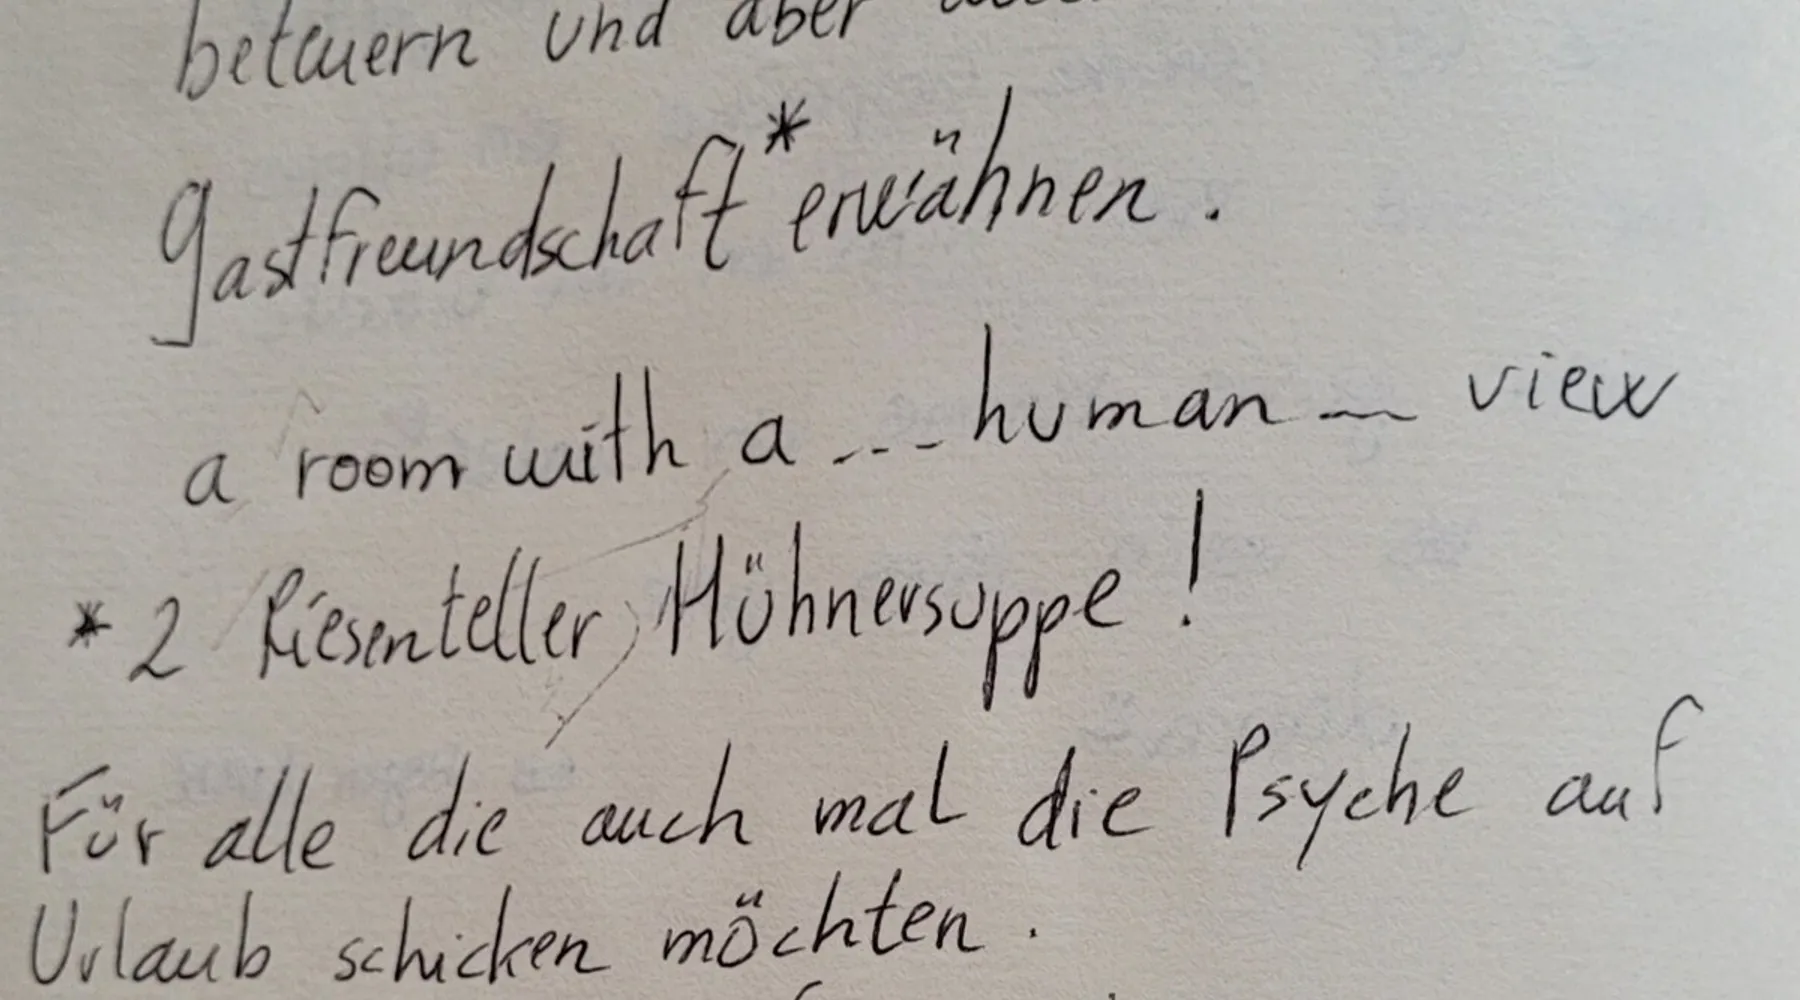 beteuern und aber
Gastfreundschaft* erwähnen.
a room with a --- human — view
* 2 Riesenteller Hühnersuppe!
Für alle die auch mal die Psyche auf
Urlaub schicken möchten.